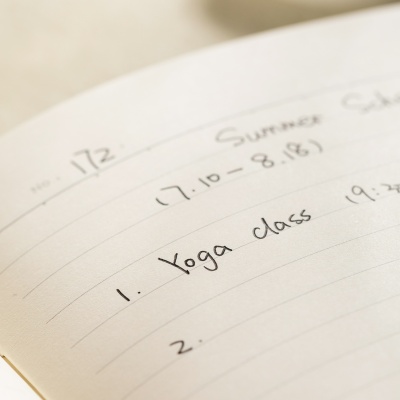 No. 172.
Summer
(7.10 - 8.18)
1. Yoga class (9:
2.